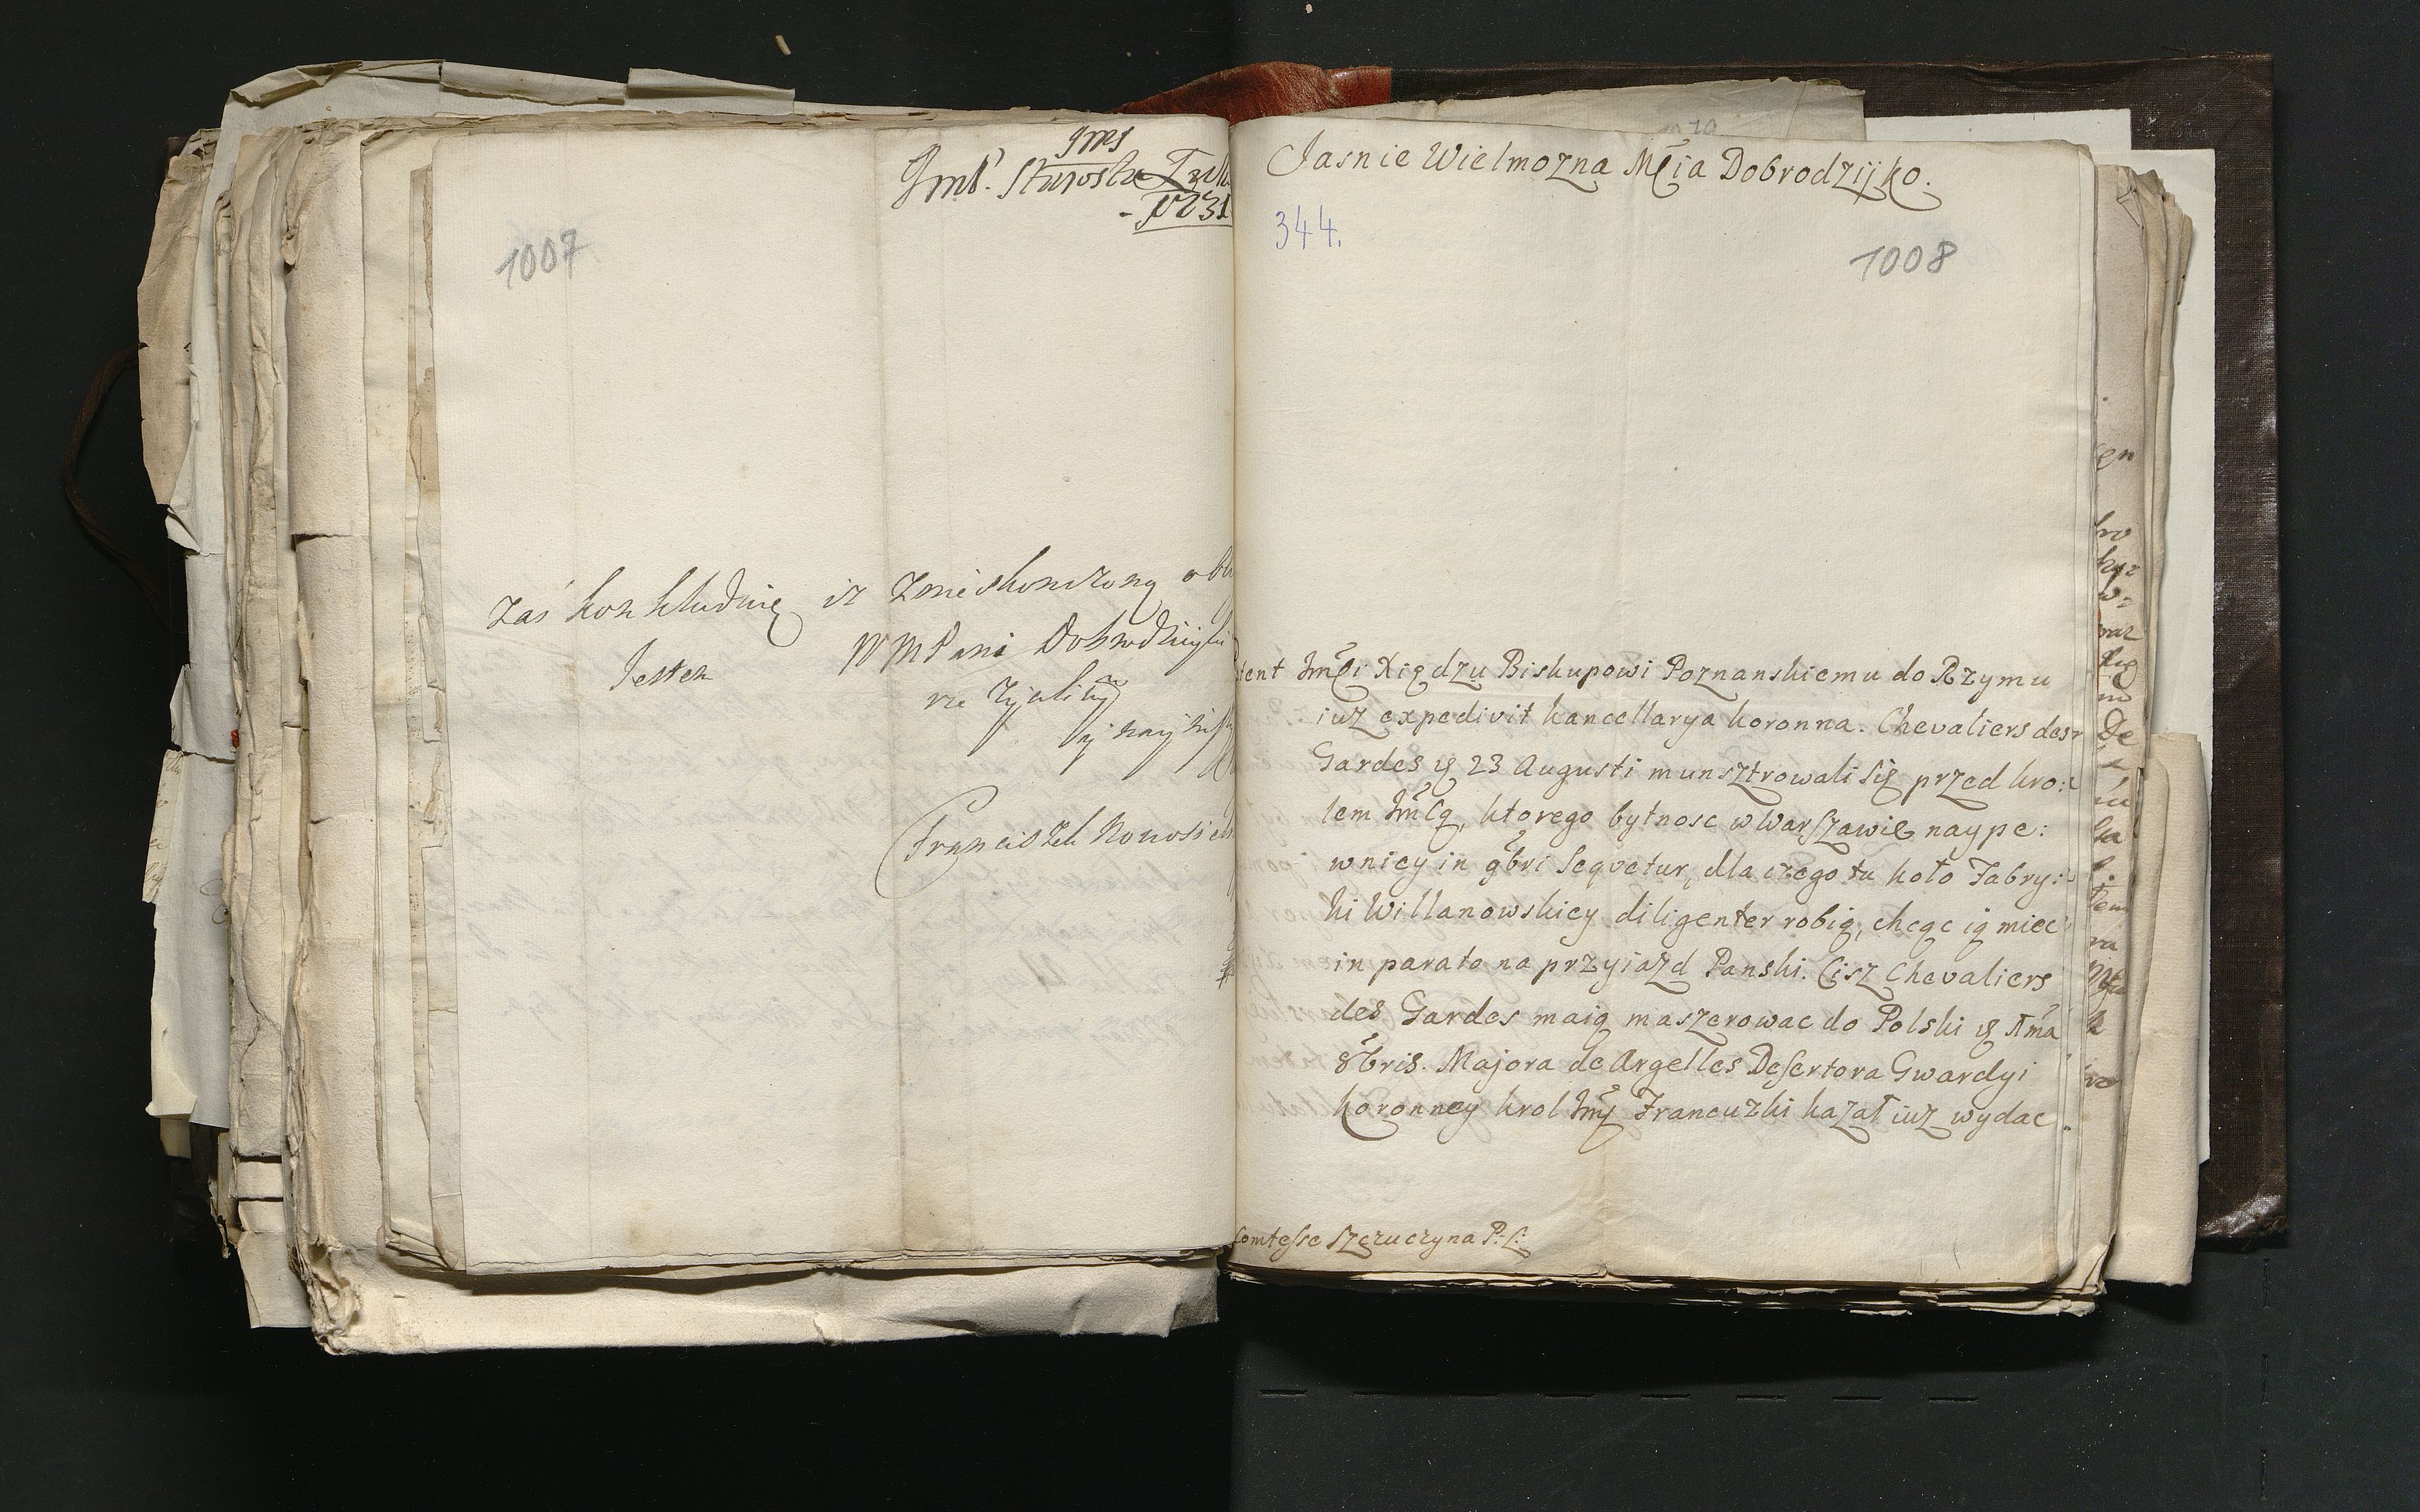 JMS
JmP. Starosta
1731
1007
zaś konkluduię iż z nieskonczoną
Jestem
WMPani Dobrodzieyki
Franciszek
Jasnie Wielmozna Mcia Dobrodzijko.
344.
1008
tent Jmci Xiędzu Biskupowi Poznanskiemu do Rzymu
iuz expedivit kancellarya koronna. Chevaliers des
Gardes 23 Augusti munsztrowali się przed kro:
lem Jmcią, ktorego bytnosc w Warszawie naype:
wniey in 9bri sequetur, dla czego tu koło Fabry:
ki Willanowskiey diligenter robią, chcąc ią miec
in parato na przyiazd Panski. Cisz Chevaliers
des Gardes maią maszerowac do Polski 1ma
8bris. Majora de Argelles Desertora Gwardyi
koronney krol Jmc Francuzki kazał iuz wydac.
Comtesse Szczuczyna P: L: